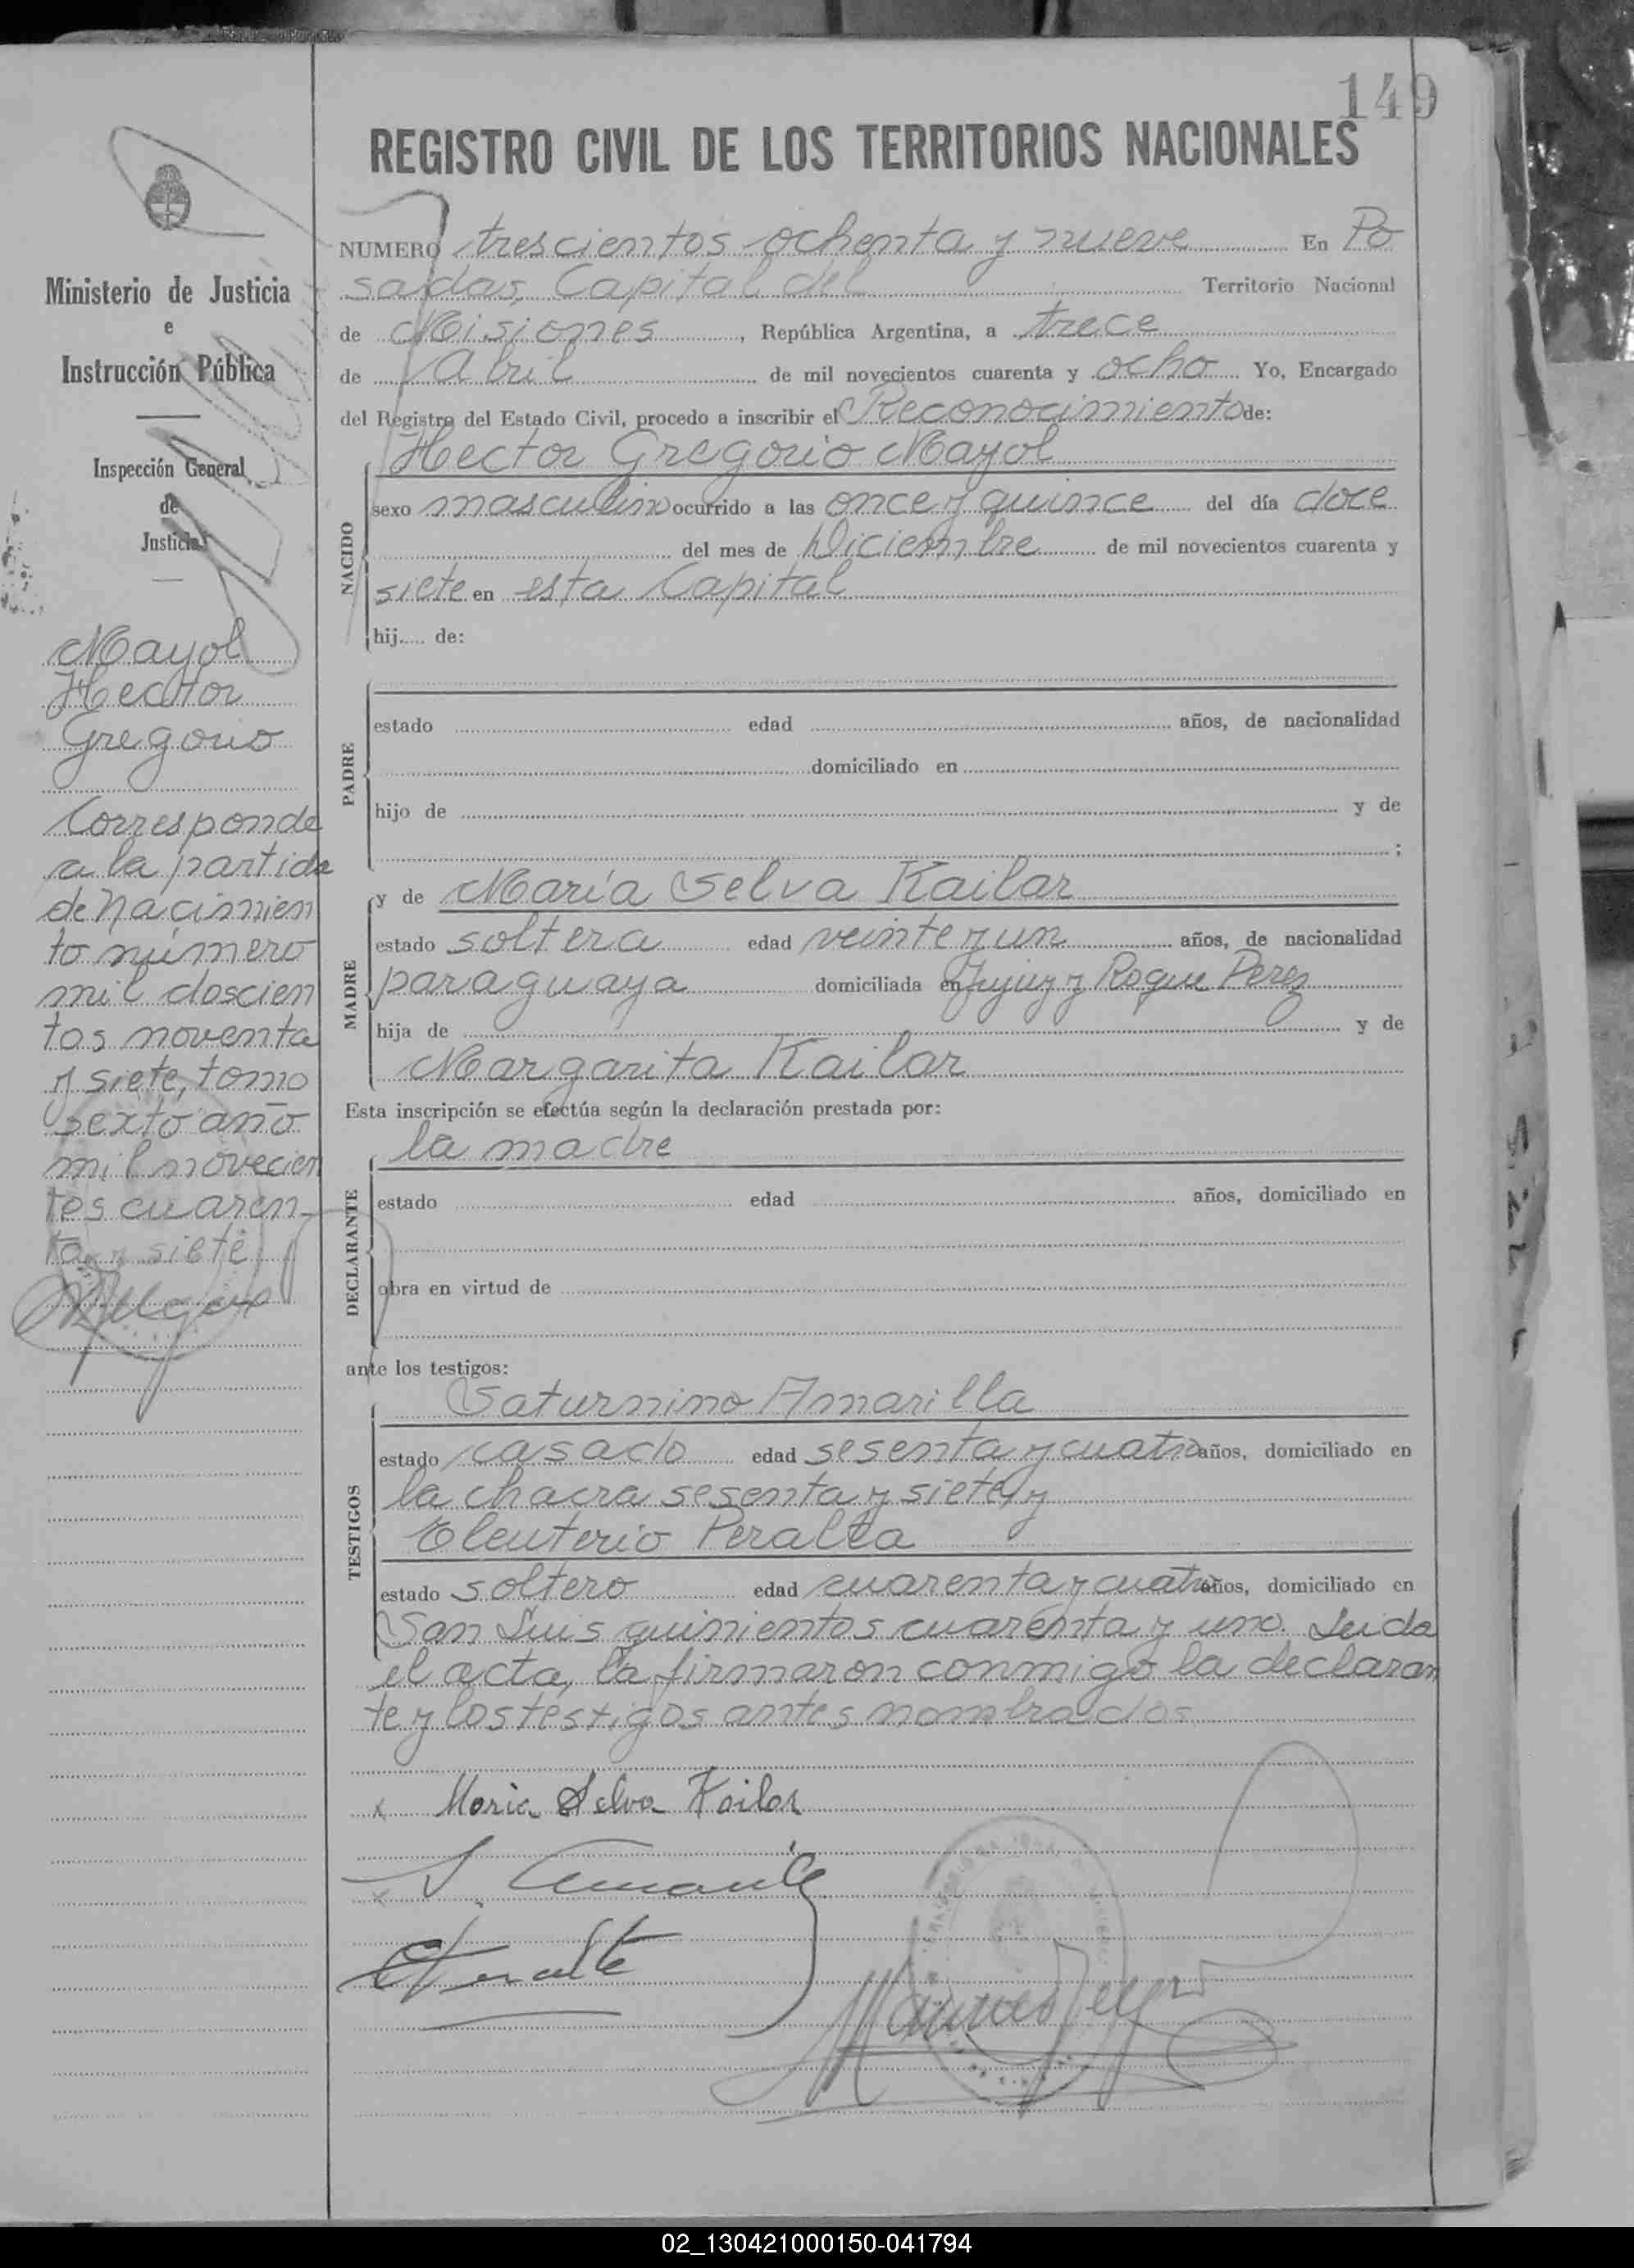 149
REGISTRO CIVIL DE LOS TERRITORIOS NACIONALES
NUMERO trescientos ochenta y nueve En Po
sadas, Capital del Territorio Nacional
de Misiones, República Argentina, a trece
de Abril de mil novecientos cuarenta y ocho Yo, Encargado
del Registro del Estado Civil, procedo a inscribir el Reconocimiento de:
NACIDO
Hector Gregorio Mayol
sexo masculino ocurrido a las once y quince del día doce
del mes de Diciembre de mil novecientos cuarenta y
siete en esta Capital
hij..... de:
PADRE
estado edad años, de nacionalidad
domiciliado en
hijo de y de
;
MADRE
y de María Selva Kailar
estado soltera edad veinte y un años, de nacionalidad
paraguaya domiciliada en Jujuy y Roque Perez
hija de y de
Margarita Kailar
Esta inscripción se efectúa según la declaración prestada por:
la madre
DECLARANTE
estado edad años, domiciliado en
obra en virtud de
ante los testigos:
TESTIGOS
Saturnino Amarilla
estado casado edad sesenta y cuatro años, domiciliado en
la chacra sesenta y siete, y
Eleuterio Peralta
estado soltero edad cuarenta y cuatro años, domiciliado en
San Luis quinientos cuarenta y uno. Leida
el acta, la firmaron conmigo la declaran
te y los testigos antes nombrados
x Maria Selva Kailar
Ministerio de Justicia
e
Instrucción Pública
Inspección General
de
Justicia
Mayol
Hector
Gregorio
Corresponde
a la partida
de nacimien
to número
mil doscien
tos noventa
y siete, tomo
sexto año
mil novecien
tos cuaren-
ta y siete
02_130421000150-041794